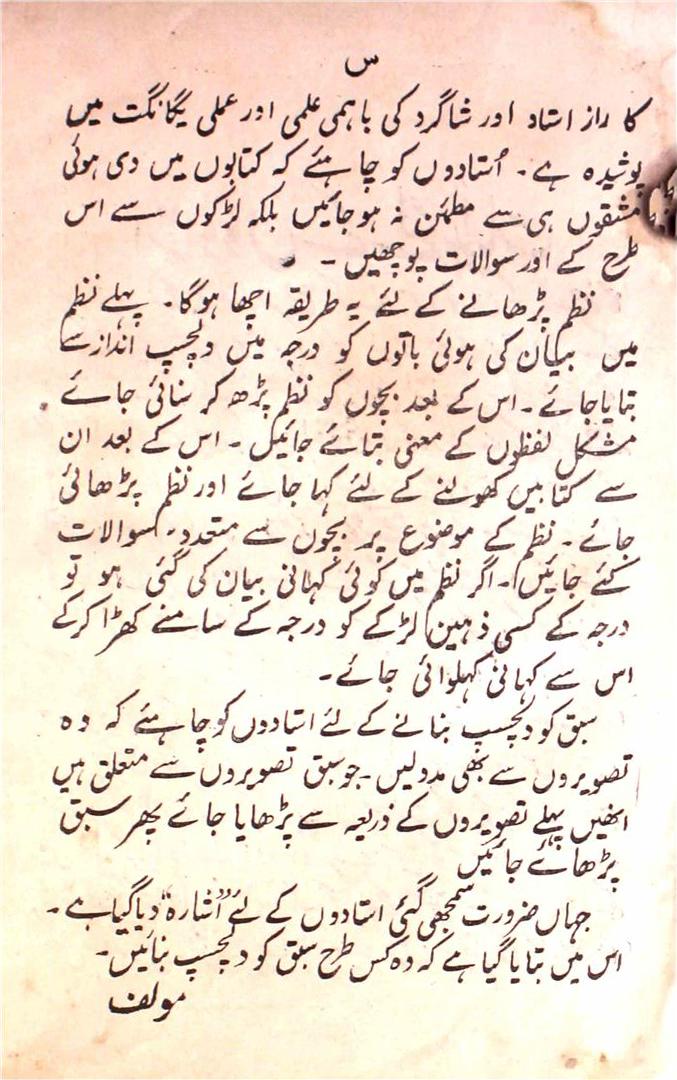 س
کا راز استاد اور شاگرد کی باہمی علمی اور عملی یگانگت میں
پوشیدہ ہے۔ اُستادوں کو چاہئے کہ کتابوں میں دی ہوئی
مشقوں ہی سے مطمئن نہ ہوجائیں بلکہ لڑکوں سے اس
طرح کے اور سوالات پوچھیں۔
نظم پڑھانے کے لئے یہ طریقہ اچھا ہوگا۔ پہلے نظم
میں بیان کی ہوئی باتوں کو درجہ میں دلچسپ انداز سے
بتایا جائے۔ اس کے بعد بچوں کو نظم پڑھ کر سنائی جائے
مشکل لفظوں کے معنی بتائے جائیں۔ اس کے بعد ان
سے کتابیں کھولنے کے لئے کہا جائے اور نظم پڑھائی
جائے۔ نظم کے موضوع پر بچوں سے متعدد سوالات
کئے جائیں۔ اگر نظم میں کوئی کہانی بیان کی گئی ہو تو
درجہ کے کسی ذہین لڑکے کو درجہ کے سامنے کھڑا کرکے
اس سے کہانی کہلوائی جائے۔
سبق کو دلچسپ بنانے کے لئے استادوں کو چاہئے کہ وہ
تصویروں سے بھی مدد لیں۔ جو سبق تصویروں سے متعلق ہیں
انھیں پہلے تصویروں کے ذریعہ سے پڑھایا جائے پھر سبق
پڑھائے جائیں
جہاں ضرورت سمجھی گئی استادوں کے لئے "اشارہ" دیا گیا ہے۔
اس میں بتایا گیا ہے کہ وہ کس طرح سبق کو دلچسپ بنائیں۔
مولف